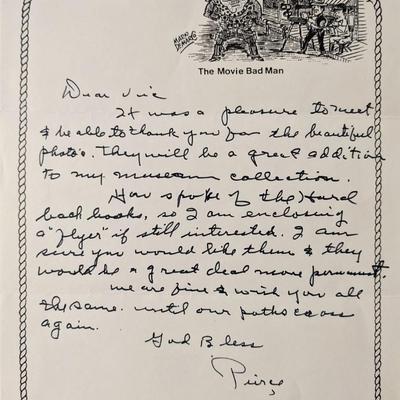 MARIO DEMARCO
The Movie Bad Man
Dear Vic
It was a pleasure to meet
& be able to thank you for the beautiful
photo's. They will be a great addition
to my museum collection.
You spoke of the Hard
back books, so I am enclosing
a "flyer" if still interested. I am
sure you would like them & they
would be a great deal more permanent.
We are fine & wish you all
the same. until our paths cross
again.
God Bless
Pierce